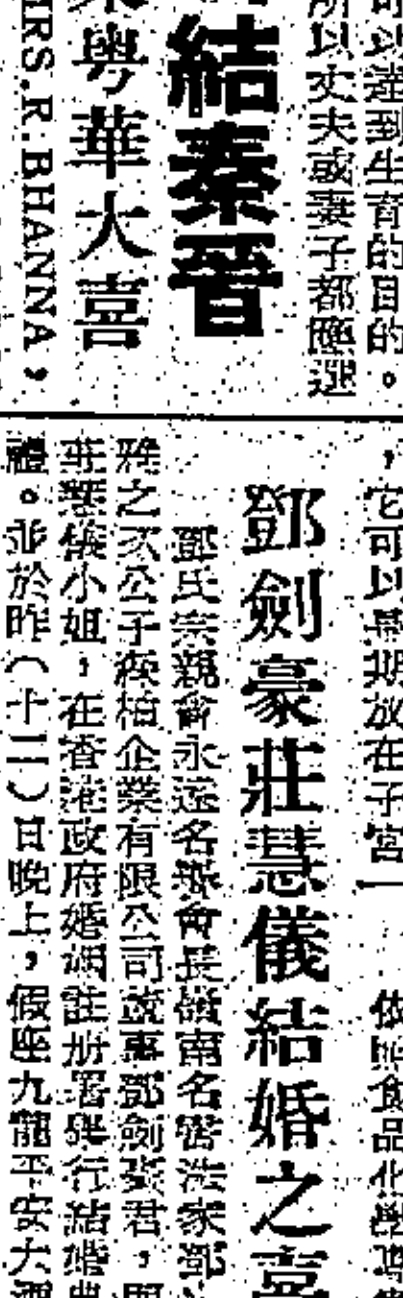 可以達到生育的目的。
所以丈夫或妻子都應選
結秦晉
粵華大喜
MRS.R.BHANNA，
，它可以長期放在子宮
依照食品化學
鄧劍豪莊慧儀結婚之喜
鄧氏宗親會永遠名譽會長嶺南名書法家鄧
之次公子森柏企業有限公司董事鄧劍豪君，
莊慧儀小姐，在香港政府婚姻註册署舉行結婚典
禮。並於昨（十二）日晚上，假座九龍平安大酒